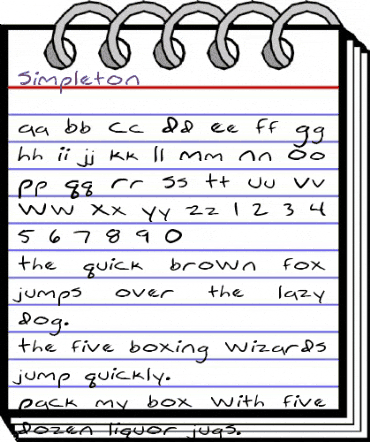 Simpleton
aa bb cc dd ee ff gg
hh ii jj kk ll mm nn oo
pp qq rr ss tt uu vv
ww xx yy zz 1 2 3 4
5 6 7 8 9 0
the quick brown fox
jumps over the lazy
dog.
the five boxing wizards
jump quickly.
pack my box with five
dozen liquor jugs.